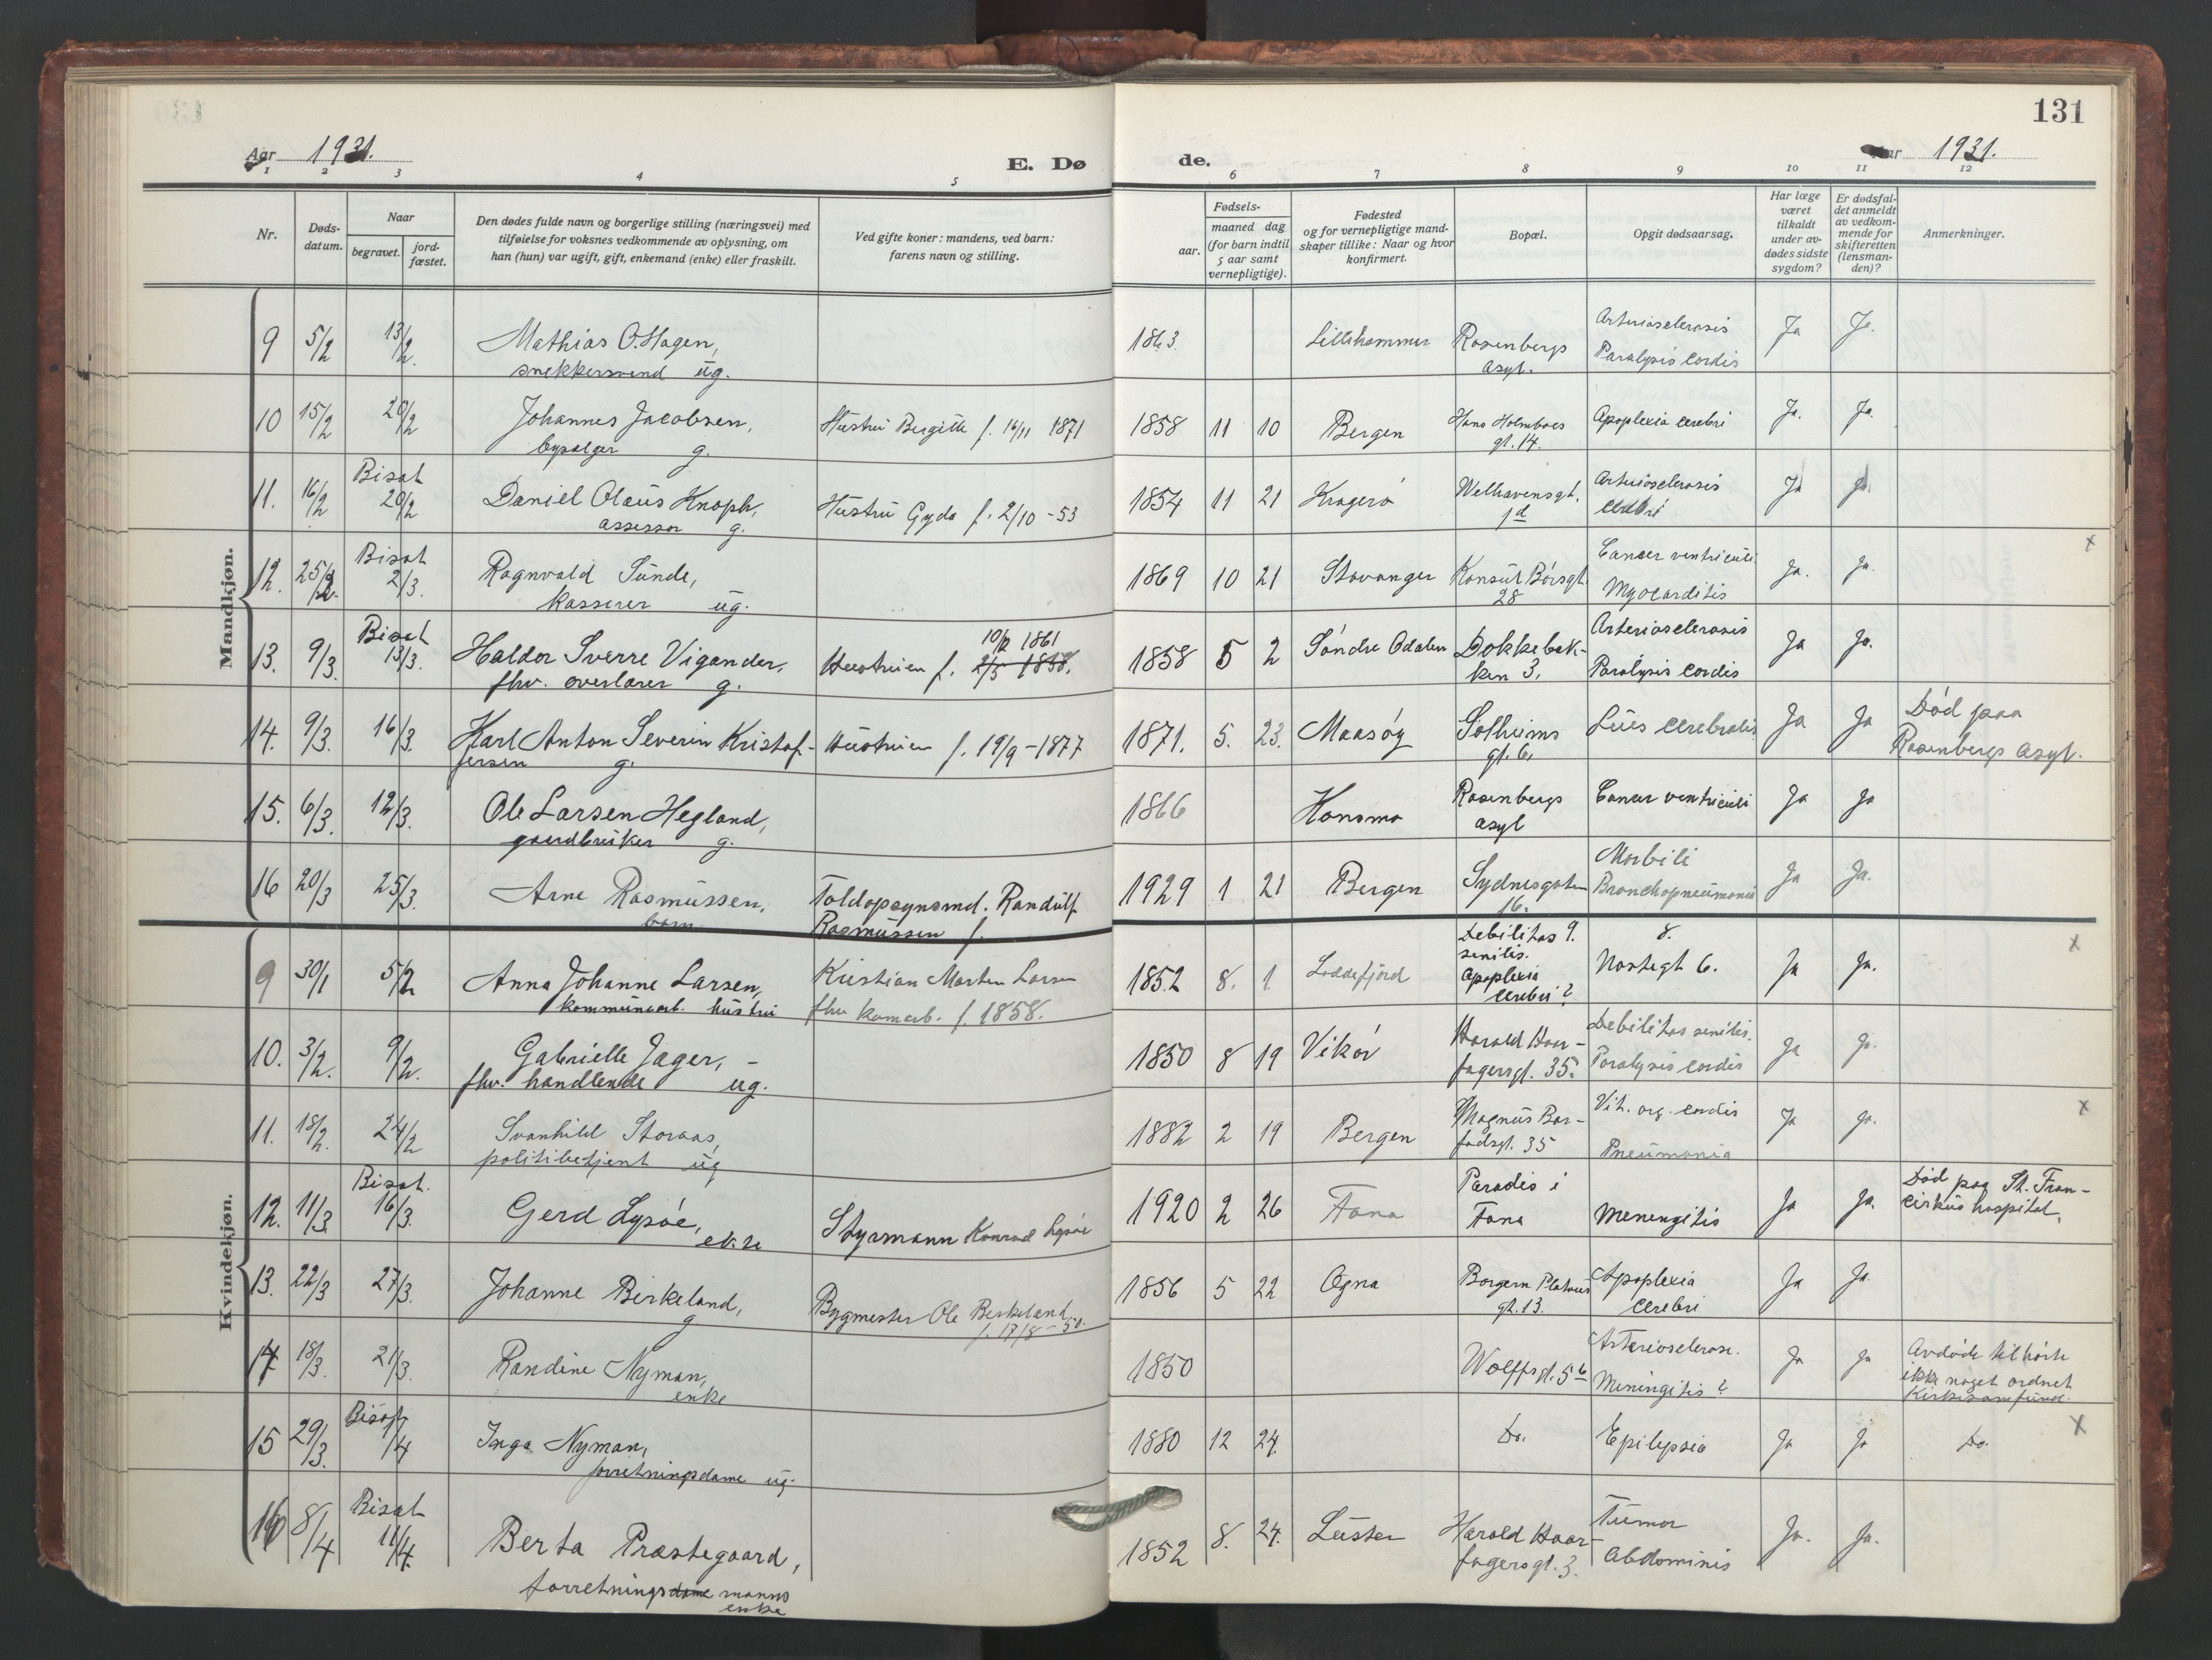 131
Aar 1931.
E. Dø
de.
Aar 1931.
1 2 3 4 5 6 7 8 9 10 11 12
Nr.
Døds-
datum.
Naar
begravet.
jord-
fæstet.
Den dødes fulde navn og borgerlige stilling (næringsvei) med
tilføielse for voksnes vedkommende av oplysning, om
han (hun) var ugift, gift, enkemand (enke) eller fraskilt.
Ved gifte koner: mandens, ved barn:
farens navn og stilling.
Fødsels-
aar.
maaned dag
(for barn indtil
5 aar samt
vernepligtige).
Fødested
og for vernepligtige mand-
skaper tillike: Naar og hvor
konfirmert.
Bopæl.
Opgit dødsaarsag.
Har læge
været
tilkaldt
under av-
dødes sidste
sygdom?
Er dødsfal-
det anmeldt
av vedkom-
mende for
skifteretten
(lensman-
den)?
Anmerkninger.
Mandkjøn.
9 5/2 13/2. Mathias O. Hagen,
snekkersvend ug.
1863. Lillehammer Rosenbergs
asyl.
Arteriosclerosis
Paralysis cordis
Ja Ja.
10 15/2 20/2 Johannes Jacobsen,
bypælger g.
Hustru Bergitte f. 16/11 1871
1858 11 10 Bergen Hans Holmboes
gt. 14.
Apoplexia cerebri Ja. Ja.
11. 16/2 Bisat
20/2
Daniel Olaus Knoph,
assessor g.
Hustru Gyda f. 2/10 - 53
1854 11 21 Kragerø Welhavensgt.
1d
Arteriosclerosis
cerebri
Ja Ja.
12. 25/2. Bisat
2/3.
Ragnvald Sunde,
kasserer ug.
1869 10 21 Stavanger Konsul Børsgt.
28
Cancer ventriculi
Myocarditis
Ja. Ja. x
13. 9/3. Bisat
13/3.
Haldor Sverre Vigander,
fhv. overlærer g.
10/12 1861
Hustruen f. 2/5 1858.
1858 5 2 Søndre Odalen Dokkebak-
ken 3.
Arteriosclerosis
Paralysis cordis
Ja Ja.
14. 9/3. 16/3. Karl Anton Severin Kristof-
fersen g.
Hustruen f. 19/9 - 1877
1871. 5. 23. Maasøy Solheims
gt. 6.
Lues cerebralis Ja Ja
Død paa
Rosenbergs asyl.
15. 6/3. 12/3. Ole Larsen Hegland,
gaardbruker g.
1866 Hansmo Rosenbergs
asyl
Cancer ventriculi Ja Ja
16 20/3 25/3. Arne Rasmussen,
barn
Toldopsynsmd. Randulf
Rasmussen f.
1929 1 21 Bergen Sydnesgaten
16.
Morbili
Bronchopneumonia
Ja Ja.
Kvindekjøn.
9 30/1 5/2 Anna Johanne Larsen,
kommunearb. hustru
Kristian Morten Larsen
fhv komarb. f. 1858.
1852 8. 1. Loddefjord
Debilitas 9.
senilis.
Apoplexia
cerebri?
8.
Nostegt 6.
Ja Ja. x
10. 3/2. 9/2. Gabrielle Jager, -
fhv. handlende ug.
1850 8 19 Vikør Harald Haar-
fagersgt. 35.
Debilitas senilis.
Paralysis cordis
Ja Ja.
11. 18/2. 24/2 Svanhild Storaas,
politibetjent ug
1882 2 19 Bergen Magnus Bar-
fodsgt. 35
Vit. org. cordis
Pneumonia
Ja Ja. x
12. 11/3. Bisat.
16/3.
Gerd Lysøe,
Styrmann Konrad Lysøe
1920 2 26 Fana Paradis i
Fana
Menengitis Ja Ja.
Død paa St. Fran-
cirkus hospital.
13. 22/3 27/3. Johanne Birkeland,
g
Bygmester Ole Birkeland
f. 17/8 - 50.
1856 5 22 Ogna Borgerm Platous
gt. 13.
Apoplexia
cerebri
Ja Ja.
14 18/3. 21/3. Randine Nyman,
enke
1850 Wolffsgt. 5b
Arteriosclerose.
Meningitis?
Ja Ja
Avdøde tilhørte
ikke noget ordnet
kirkesamfund.
15 29/3. Bisat
1/4
Inga Nyman,
forretningsdame ug.
1880 12 24. Do. Epilepsia Ja Ja Do. x
16 8/4 Bisat
11/4.
Berta Præstegaard,
forretningsdame manns
enke
1852 8. 24. Luster Harald Haar-
fagersgt. 3.
Tumor
Abdominis
Ja. Ja.